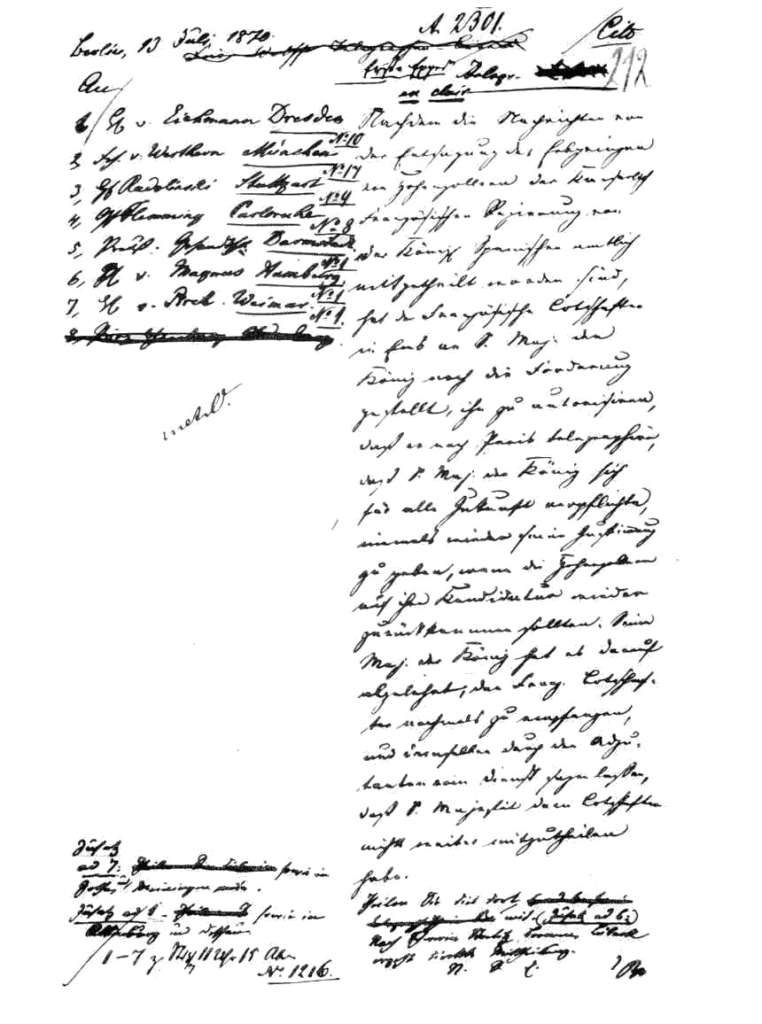 A. 2301.
Cito
Berlin, 13 Juli 1870.
212
Telegr.
en clair
An
1, H v. Eichmann Dresden
No 10
2, Frh. v. Werthern München
No 17
3, Gf Radolinski Stuttgart
No 9
4, Gf Flemming Carlsruhe
No 8
5, Preuß. Gesandtsch. Darmstadt
No 1
6, H v. Magnus Hamburg
No 1
7, H v. Weimar
No 1.
Nachdem die Nachrichten von
der Entsagung des Erbprinzen
von Hohenzollern der Kaiserlich
Französischen Regierung von
der König Spanischen amtlich
mitgetheilt worden sind,
hat der Französische Botschafter
in Ems an S. Maj. den
König noch die Forderung
gestellt, ihn zu autorisiren,
daß er nach Paris telegraphire,
daß S. Maj. der König sich
für alle Zukunft verpflichte,
niemals wieder seine Zustimmung
zu geben, wenn die Hohenzollern
auf ihre Kandidatur wieder
zurückkommen sollten. Seine
Maj. der König hat es darauf
abgelehnt, den Franz. Botschaf-
ter nochmals zu empfangen,
und demselben durch den Adju-
tanten vom Dienst sagen lassen,
daß S. Majestät dem Botschafter
nichts weiter mitzutheilen
habe.
Theilen Sie dies dort mit. (Zusatz ad 6:)
Zusatz
ad 7: sowie in
Gotha, Meiningen
Zusatz ad sowie in
Altenburg und Dessau
No. 1216.